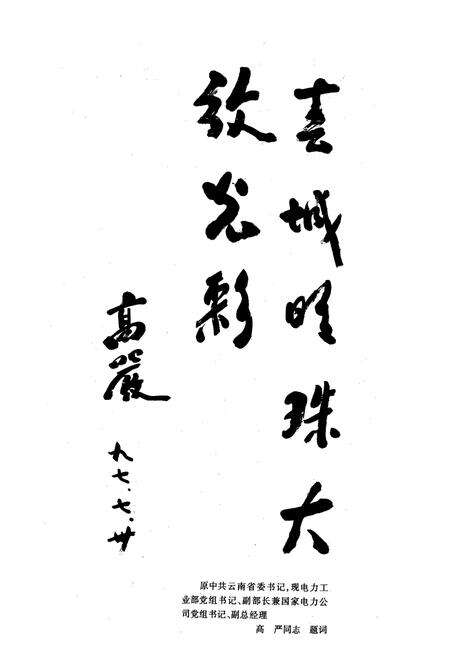 春城明珠大
放光彩
高嚴
九七.七.卅
原中共云南省委书记,现电力工
业部党组书记、副部长兼国家电力公
司党组书记、副总经理
高 严同志 题词